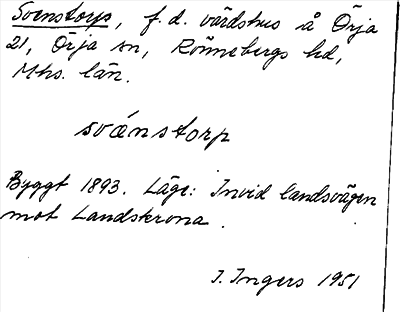 Svenstorp, f.d. värdshus å Örja
21, Örja sn, Rönnebergs hd,
Mhs. län.
svänstorp
Byggt 1893. Läge: Invid landsvägen
mot Landskrona.
I. Ingers 1951